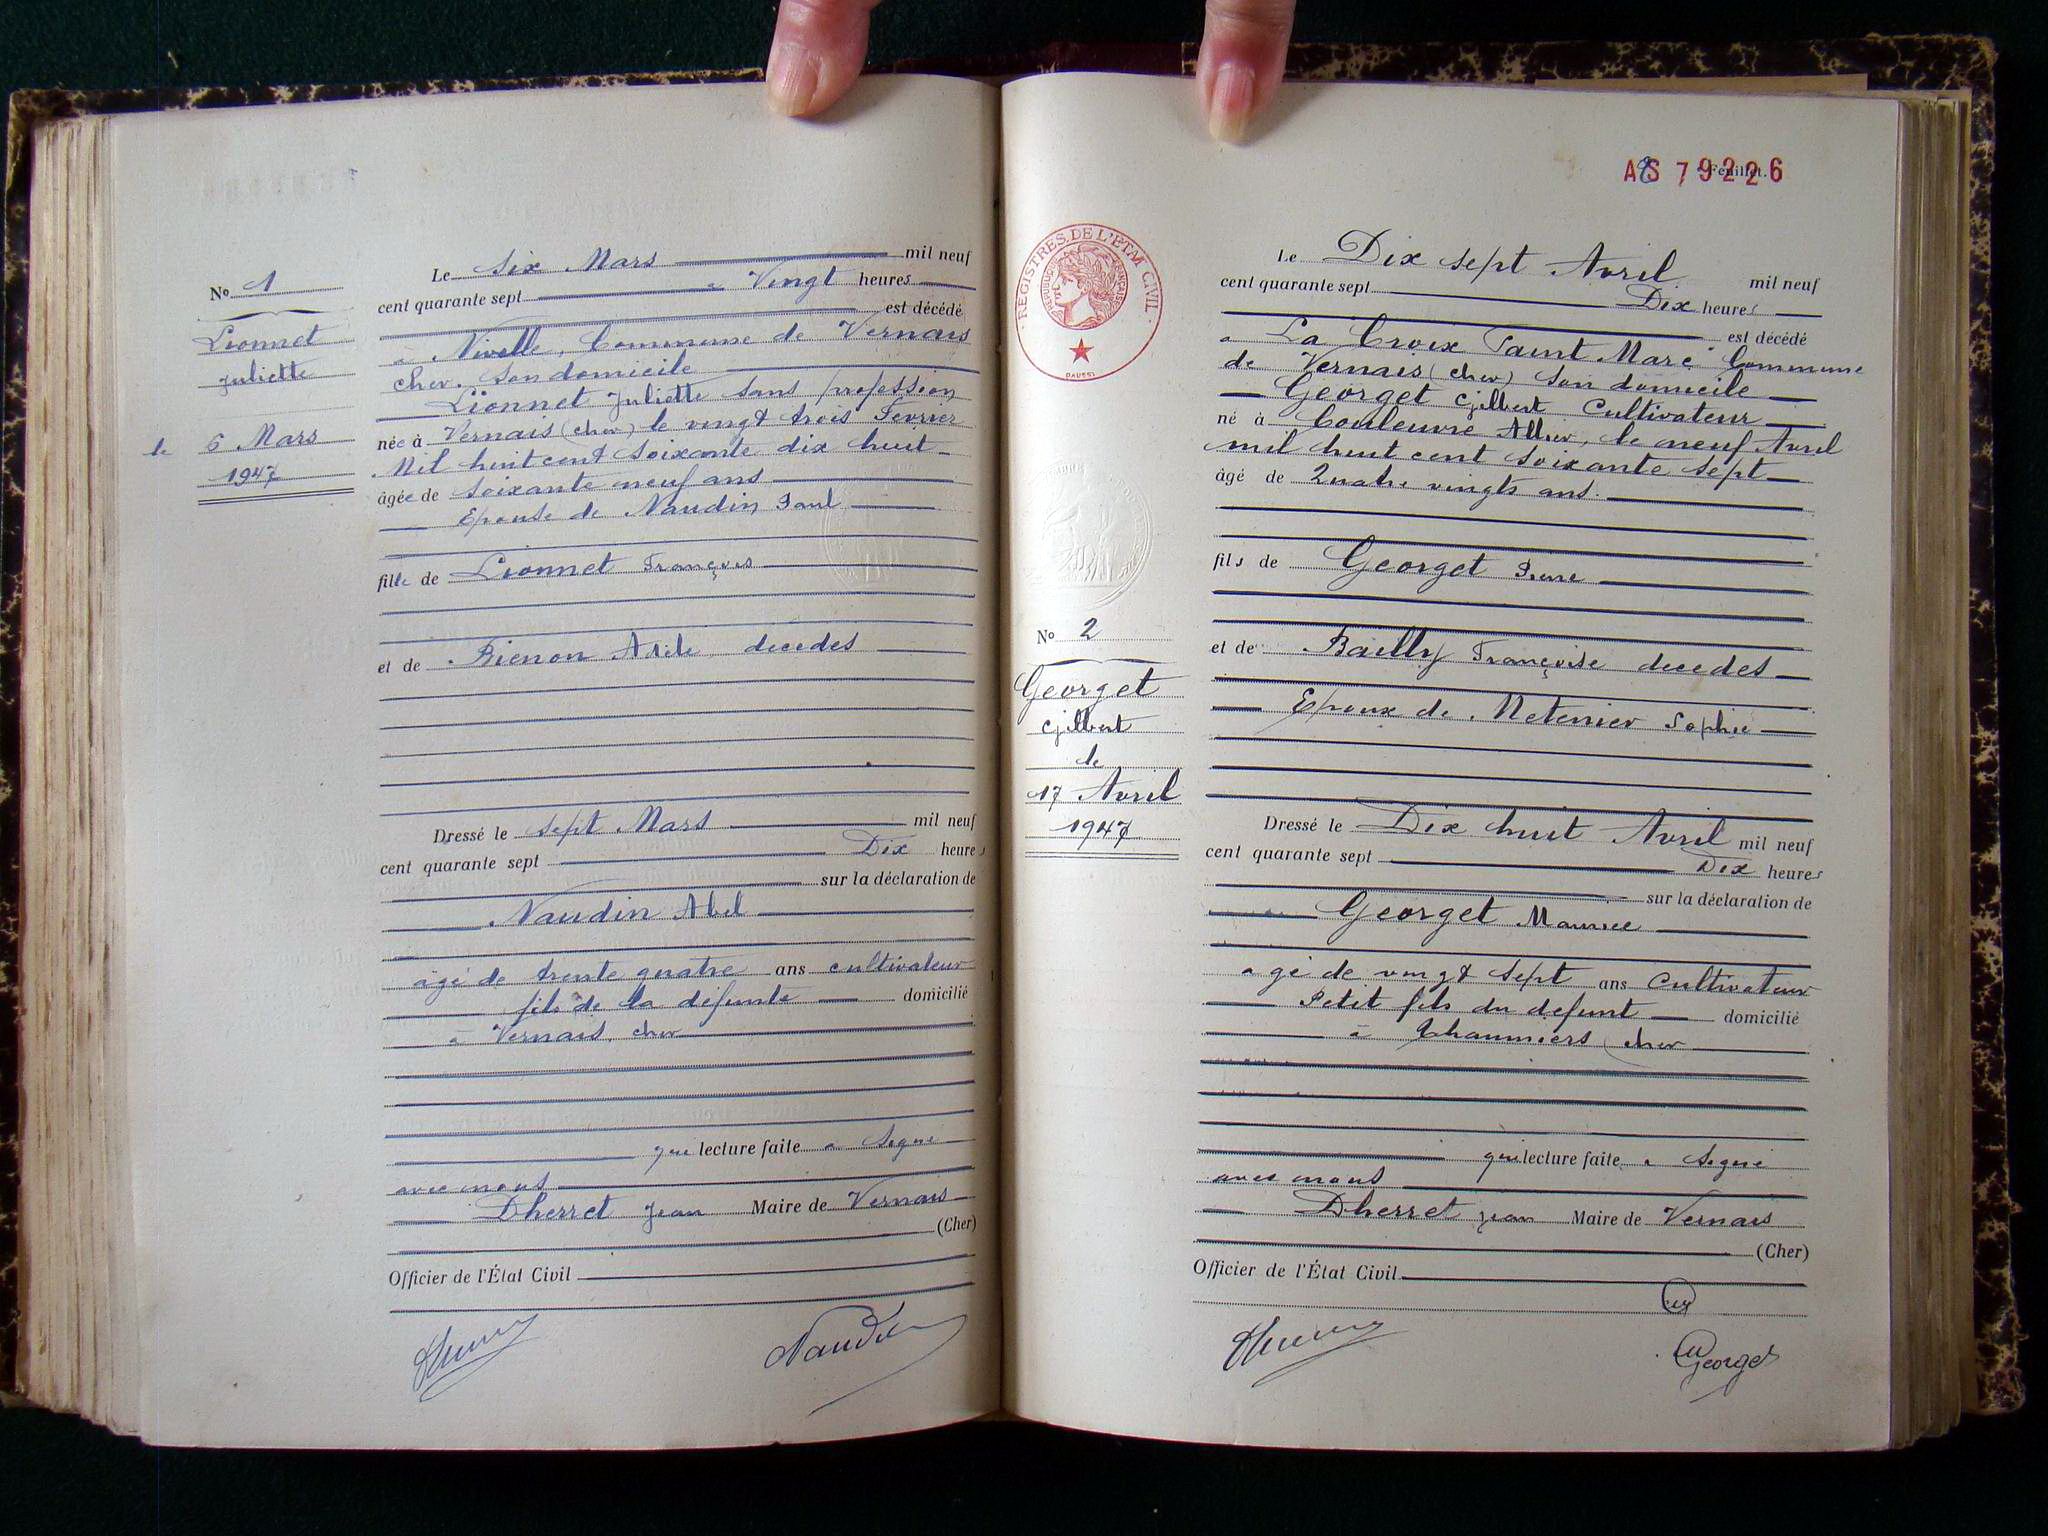 Nº 1
Lionnet
Juliette
le 6 Mars
1947
Le Six Mars mil neuf
cent quarante sept a Vingt heures
est décédé
a Nivelle, Commune de Vernais
Cher. Son domicile
Lionnet Juliette sans profession
née à Vernais (cher) le vingt trois Fevrier
Mil huit cent soixante dix huit
âgée de soixante neuf ans
Epouse de Naudin Paul
fille de Lionnet François
et de Bienon décédes
Dressé le sept Mars mil neuf
cent quarante sept Dix heures
sur la déclaration de
Naudin Abel
âgé de trente quatre ans cultivateur
fils de la défunte domicilié
a Vernais, cher
que lecture faite a Signé
avec nous
Dherret Jean Maire de Vernais
(Cher)
Officier de l'État Civil
Naudin
AS 79226
8 Feuillet.
REGISTRES DE L'ETAT CIVIL
REPUBLIQUE FRANÇAISE
DAUSSI
Nº 2
Georget
Gilbert
le
17 Avril
1947
Le Dix sept Avril mil neuf
cent quarante sept Dix heures
est décédé
a La Croix Saint Marc Commune
de Vernais (cher) son domicile
Georget Gilbert Cultivateur
né à Couleuvre Allier, le neuf Avril
mil huit cent soixante sept
âgé de Quatre vingts ans.
fils de Georget Pierre
et de Bailly Françoise decedes
Epoux de Metenier Sophie
Dressé le Dix huit Avril mil neuf
cent quarante sept Dix heures
sur la déclaration de
Georget Maurice
agé de vingt sept ans Cultivateur
Petit fils du defunt domicilié
à Chaumiers (cher
que lecture faite a Signé
avec nous
Dherret Jean Maire de Vernais
(Cher)
Officier de l'État Civil
Georget